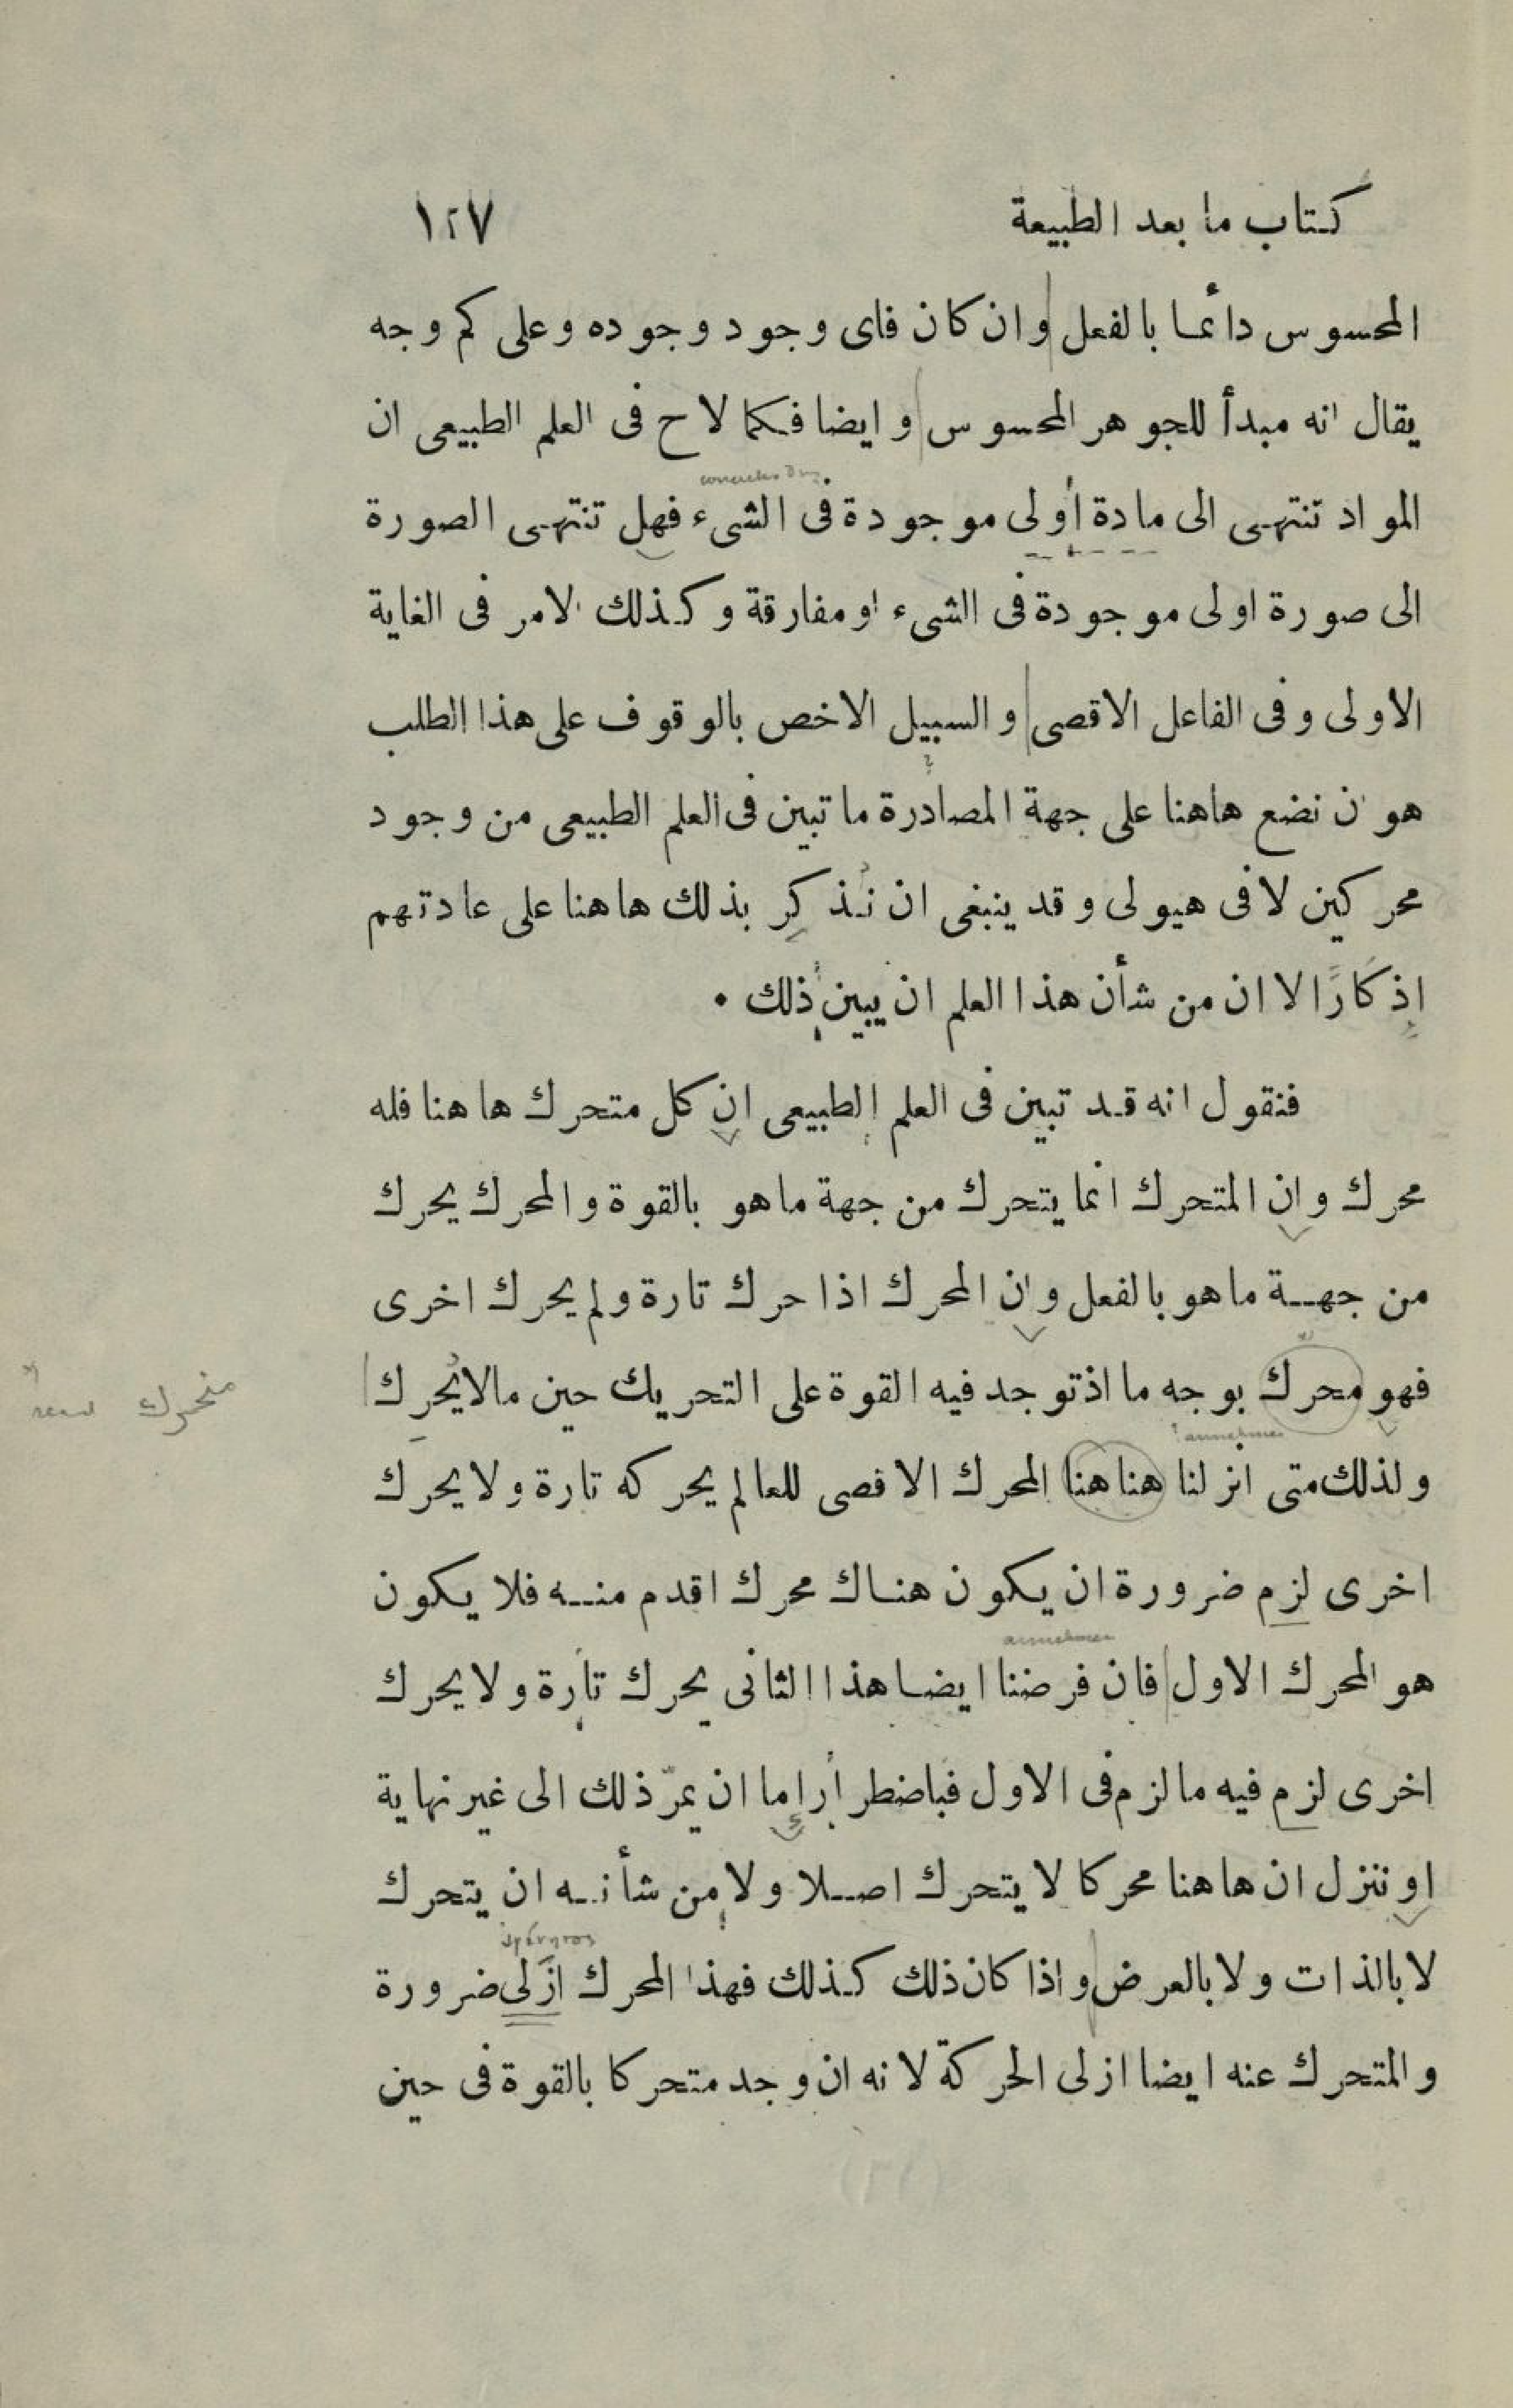 كتاب ما بعد الطبيعة ١٢٧
المحسوس دائما بالفعل وان كان فاى وجود وجوده وعلى كم وجه
يقال انه مبدأ للجوهر المحسوس وايضا فكما لاح فى العلم الطبيعى ان
المواد تنتهى الى مادة أولى موجودة فى الشىء فهل تنتهى الصورة
الى صورة اولى موجودة فى الشىء او مفارقة وكذلك الامر فى الغاية
الاولى وفى الفاعل الاقصى والسبيل الاخص بالوقوف على هذا الطلب
هو ان نضع هاهنا على جهة المصادرة ما تبين فى العلم الطبيعى من وجود
محركين لا فى هيولى وقد ينبغى ان نُذكِر بذلك هاهنا على عادتهم
إذكارًا لا ان من شأن هذا العلم ان يبين ذلك ٠
فنقول انه قد تبين فى العلم الطبيعى ان كل متحرك هاهنا فله
محرك وان المتحرك انما يتحرك من جهة ما هو بالقوة والمحرك يحرك
من جهة ما هو بالفعل وان المحرك اذا حرك تارة ولم يحرك اخرى
فهو محرك بوجه ما اذ توجد فيه القوة على التحريك حين ما لا يُحرِك
متحرك
ولذلك متى انزلنا
annehmen
هنا هنا المحرك الاقصى للعالم يحركه تارة ولا يحرك
اخرى لزم ضرورة ان يكون هناك محرك اقدم منه فلا يكون
annehmen
هو المحرك الاول فان فرضنا ايضا هذا الثانى يحرك تارة ولا يحرك
اخرى لزم فيه ما لزم فى الاول فباضطرار إما ان يمرّ ذلك الى غير نهاية
او ننزل ان هاهنا محركا لا يتحرك اصلا ولا من شأنه ان يتحرك
لا بالذات ولا بالعرض واذا كان ذلك كذلك فهذا المحرك ازلى ضرورة
والمتحرك عنه ايضا ازلى الحركة لانه ان وجد متحركا بالقوة فى حين